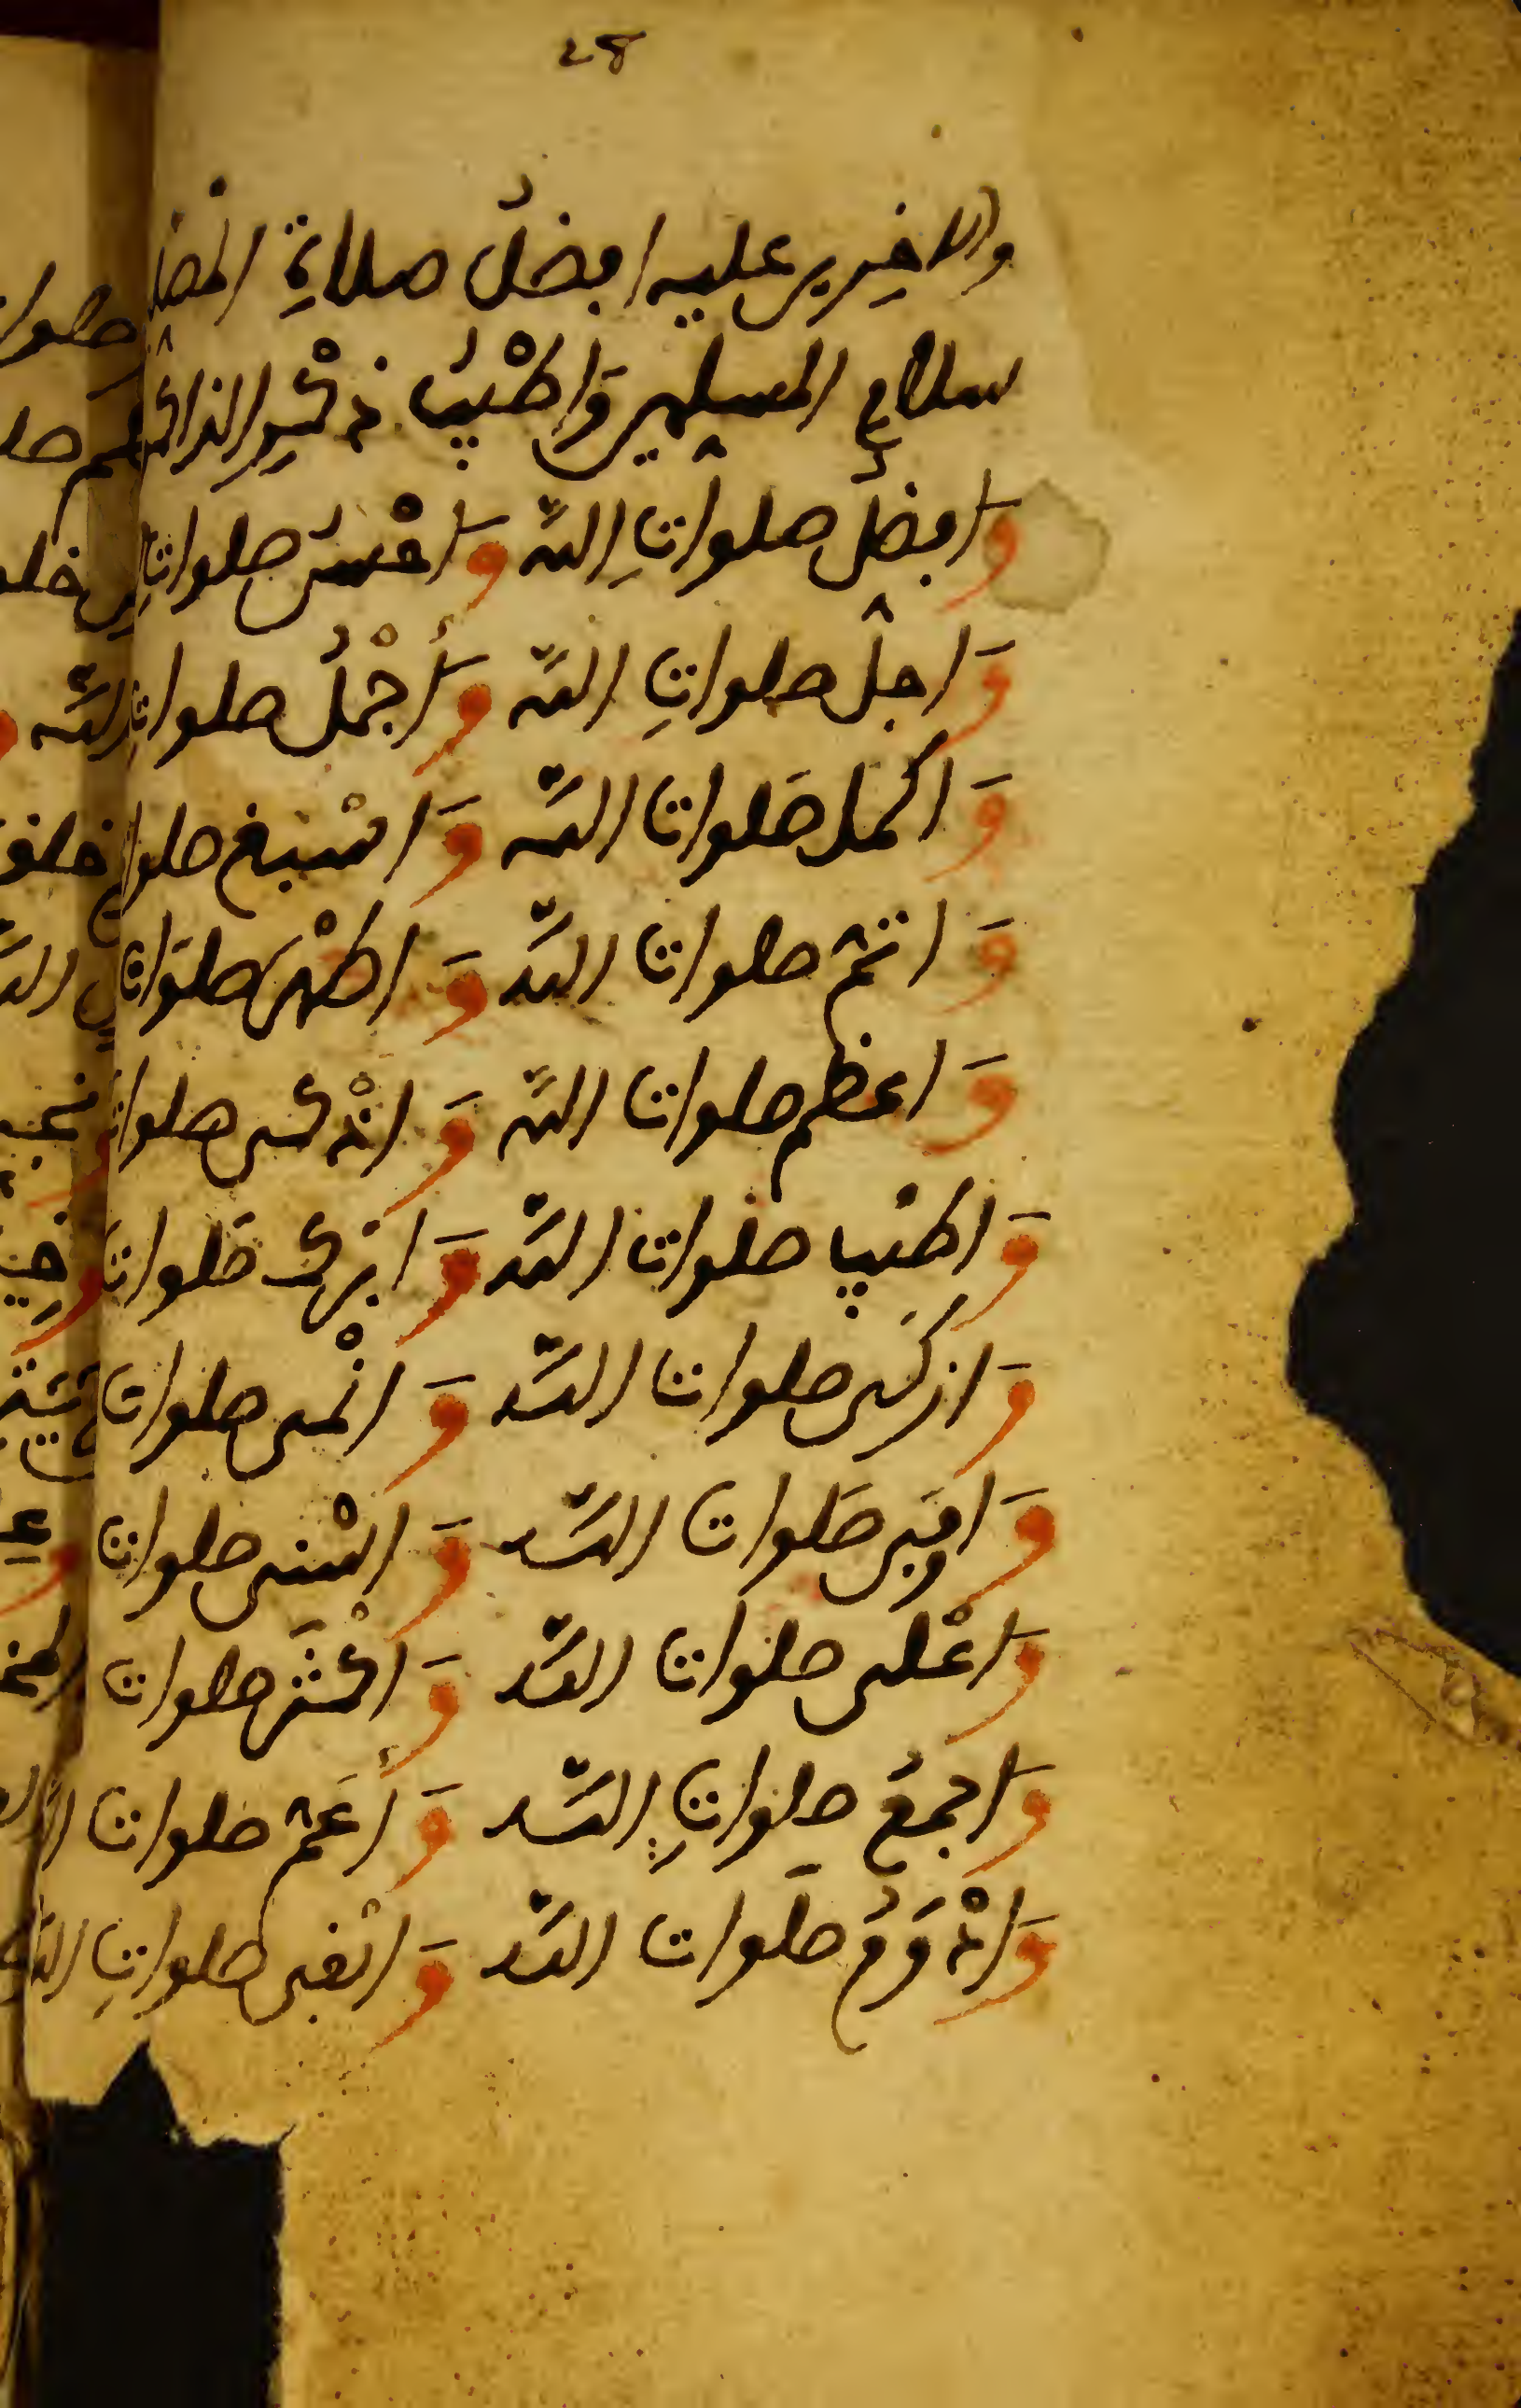 28
والاخرين عليه افضلُ صلاةِ المصلـ
سلامِ المسلمين وَاَطْيبُ ذكْرِ الذاكـ
وَافضلُ صلواتِ الله وَاحْسنُ صلواتِ
وَاجلُّ صلواتِ الله وَأَجْملُ صلواتِ
وَاكمل صَلوات الله وَاسْبغ صلوا
وَاتمّ صلوات الله وَاظْهر صلوَات
وَاعظم صلوات الله وَاذْكى صلوات
وَاطْيب صلوات الله وَابْرك صَلوات
وَازكَى صلوات الله وَانْمى صلوات
وَاوفَى صَلوات الله وَاسْنى صلوات
وَاعْلى صلوات الله وَاكْثَر صلوات
وَاجمعُ صلواتِ الله وَأَعَمّ صلوات ا
وَاذْوَمُ صلَوات الله وَابْقى صلواتِ الله